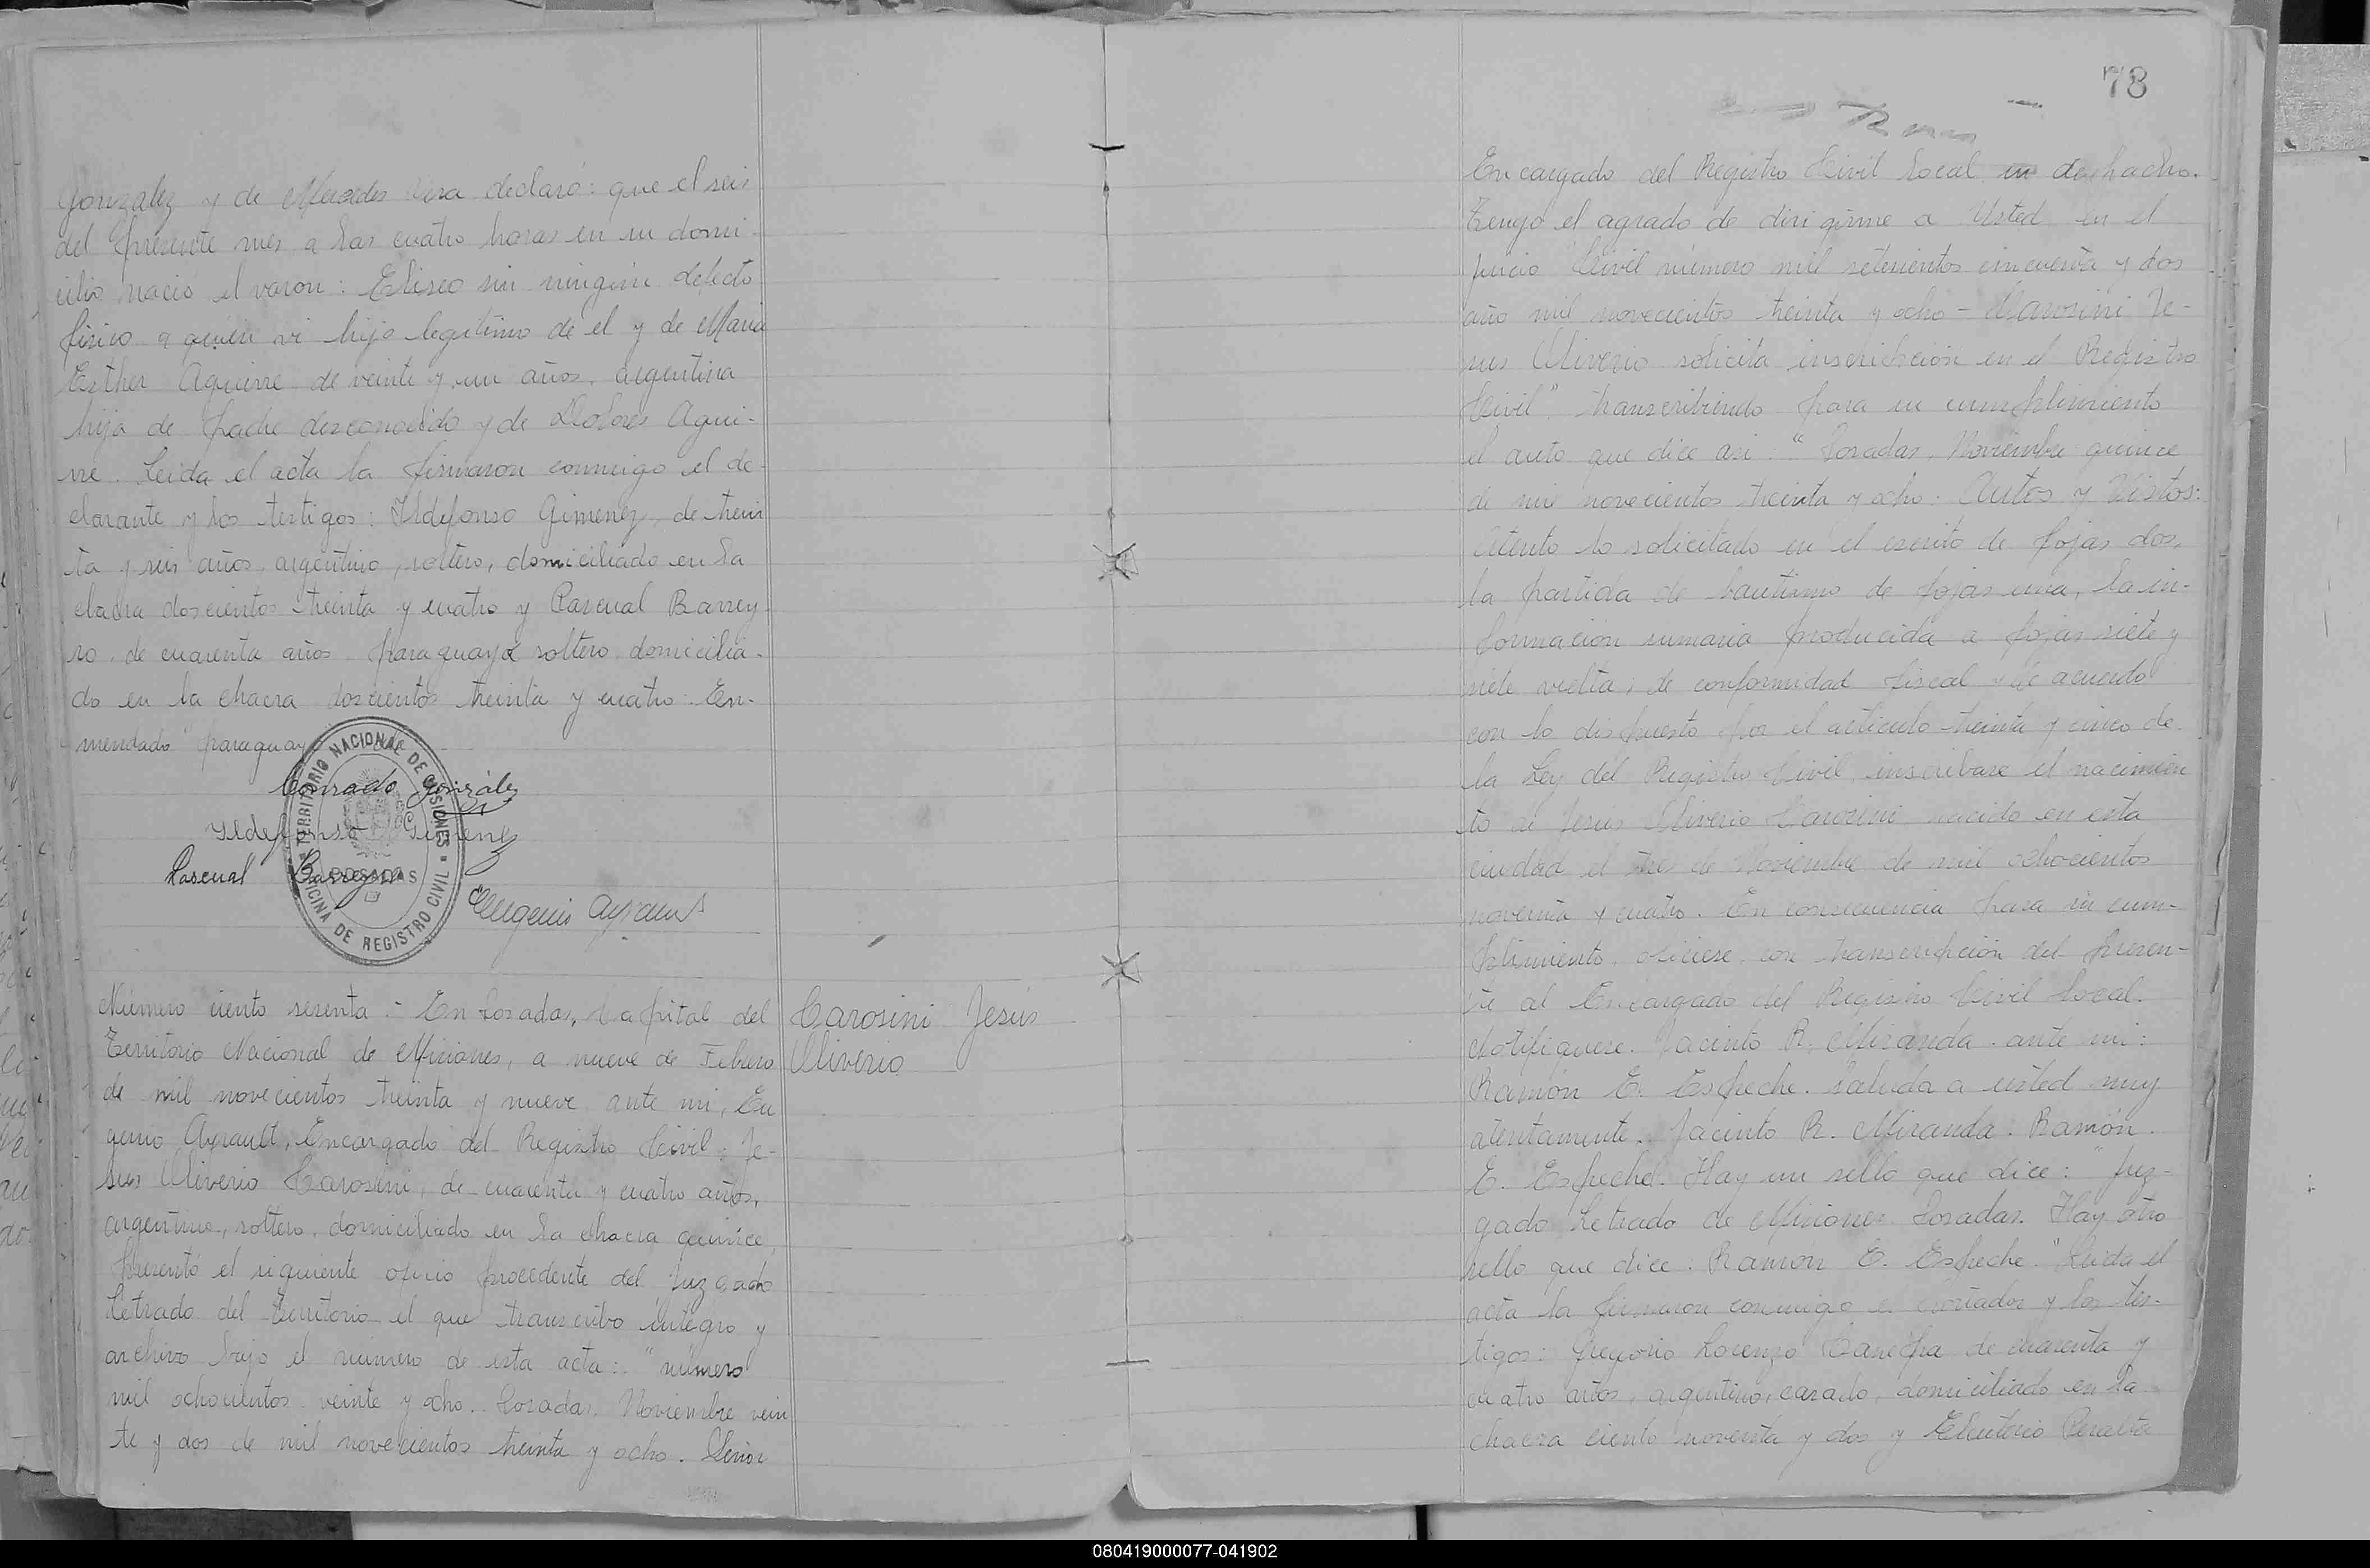 Gonzalez y de Mercedes Vera declaró: que el seis
del presente mes a las cuatro horas en su domi-
cilio nacio el varon: Eliseo sin ningún defecto
fisico a quien vi hijo legitimo de el y de Maria
Esther Aguirre de veinte y un años, argentina
hija de padre desconocido y de Dolores Agui-
rre. Leida el acta la firmaron conmigo el de-
clarante y los testigos: Ildefonso Gimenez, de trein
ta y seis años, argentino, soltero, domiciliado en la
chacra doscientos treinta y cuatro y Pascual Barrey-
ro, de cuarenta años paraguayo soltero domicilia-
do en la chacra doscientos treinta y cuatro. En-
mendado paraguayo vale
Conrado González
Ildefonso Gimenez
Pascual Barreyro
Eugenio Ayrault
TERRITORIO NACIONAL DE MISIONES
POSADAS
OFICINA DE REGISTRO CIVIL
Número ciento sesenta - En Posadas, Capital del
Territorio Nacional de Misiones, a nueve de Febrero
de mil novecientos treinta y nueve, ante mi, Eu
genio Ayrault, Encargado del Registro Civil: Je-
sus Oliverio Carosini, de cuarenta y cuatro años,
argentino, soltero, domiciliado en la chacra quince,
presentó el siguiente oficio procedente del Juzgado
Letrado del territorio el que transcribo integro y
archivo bajo el numero de esta acta: "número
mil ochocientos veinte y ocho. Posadas, Noviembre vein
te y dos de mil novecientos treinta y ocho. Señor
Carosini Jesús
Oliverio
78
Encargado del Registro Civil local en deshacho.
Tengo el agrado de dirigirme a Usted en el
juicio Civil número mil setecientos cincuenta y dos
año mil novecientos treinta y ocho - Carosini Je-
sus Oliverio solicita inscripción en el Registro
Civil", transcribiendo para su cumplimiento
el auto que dice asi: "Posadas, Noviembre quince
de mil novecientos treinta y ocho: Autos y Vistos:
Atento lo solicitado en el escrito de fojas dos,
la partida de bautismo de fojas una, la in-
formación sumaria producida a fojas siete y
siete vuelta, de conformidad fiscal y de acuerdo
con lo dispuesto por el articulo treinta y cinco de
la Ley del Registro Civil, inscribase el nacimien
to de Jesús Oliverio Carosini nacido en esta
ciudad el tres de Noviembre de mil ochocientos
noventa y cuatro. En consecuencia para su cum-
plimiento oficiese con transcripción del presen-
te al Encargado del Registro Civil local.
Notifiquese. Jacinto R. Miranda. ante mi:
Ramón E. Espeche. Saluda a usted muy
atentamente. Jacinto R. Miranda. Ramón.
E. Espeche. Hay un sello que dice: "Juz-
gado Letrado de Misiones Posadas. Hay otro
sello que dice: Ramón E. Espeche." Leida el
acta la firmaron conmigo el y los tes-
tigos: Gregorio Lorenzo Canepa de cuarenta y
cuatro años, argentino, casado, domiciliado en la
chacra ciento noventa y dos y Eleuterio Peralta
080419000077-041902